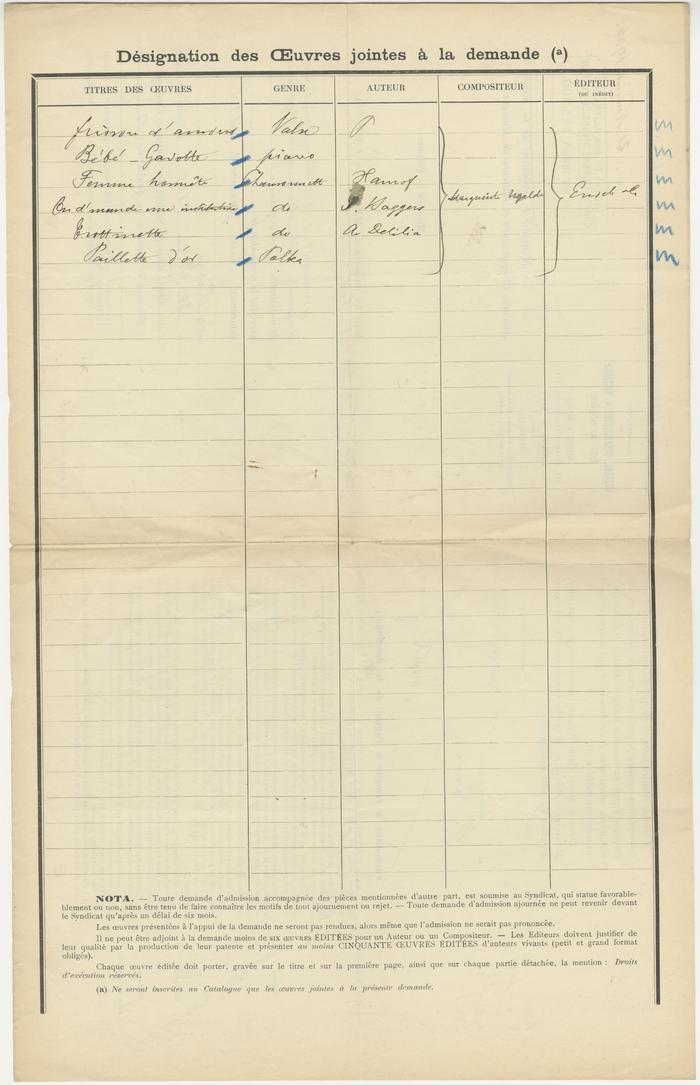 Désignation des Œuvres jointes à la demande (a)
TITRES DES ŒUVRES GENRE AUTEUR COMPOSITEUR ÉDITEUR
(OU INÉDIT)
frisson d'amour Valse
Bébé - Gavotte piano
Femme honnête Chansonnette Hamof
On d'mande une institutrice do Daggers
Trottinette do A. Delilia
Paillette d'or Polka
Marguerite Ugalde
NOTA. — Toute demande d'admission accompagnée des pièces mentionnées d'autre part, est soumise au Syndicat, qui statue favorable-
blement ou non, sans être tenu de faire connaître les motifs de tout ajournement ou rejet. — Toute demande d'admission ajournée ne peut revenir devant
le Syndicat qu'après un délai de six mois.
Les œuvres présentées à l'appui de la demande ne seront pas rendues, alors même que l'admission ne serait pas prononcée.
Il ne peut être adjoint à la demande moins de six ŒUVRES ÉDITÉES pour un Auteur ou un Compositeur. — Les Éditeurs doivent justifier de
leur qualité par la production de leur patente et présenter au moins CINQUANTE ŒUVRES ÉDITÉES d'auteurs vivants (petit et grand format
obligés).
Chaque œuvre éditée doit porter, gravée sur le titre et sur la première page, ainsi que sur chaque partie détachée, la mention : Droits
d'exécution réservés.
(a) Ne seront inscrites au Catalogue que les œuvres jointes à la présente demande.